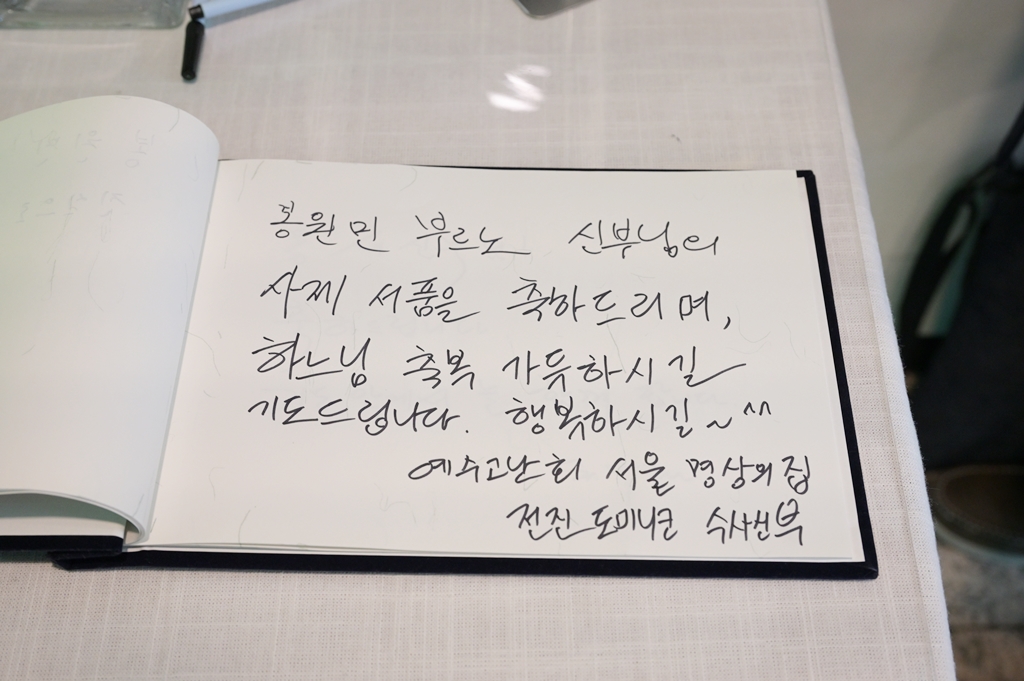 봉원민 부르노 신부님의
사제 서품을 축하드리며,
하느님 축복 가득하시길
기도드립니다. 행복하시길~^^
예수고난회 서울 명상의집
전진 도미니코 수사신부